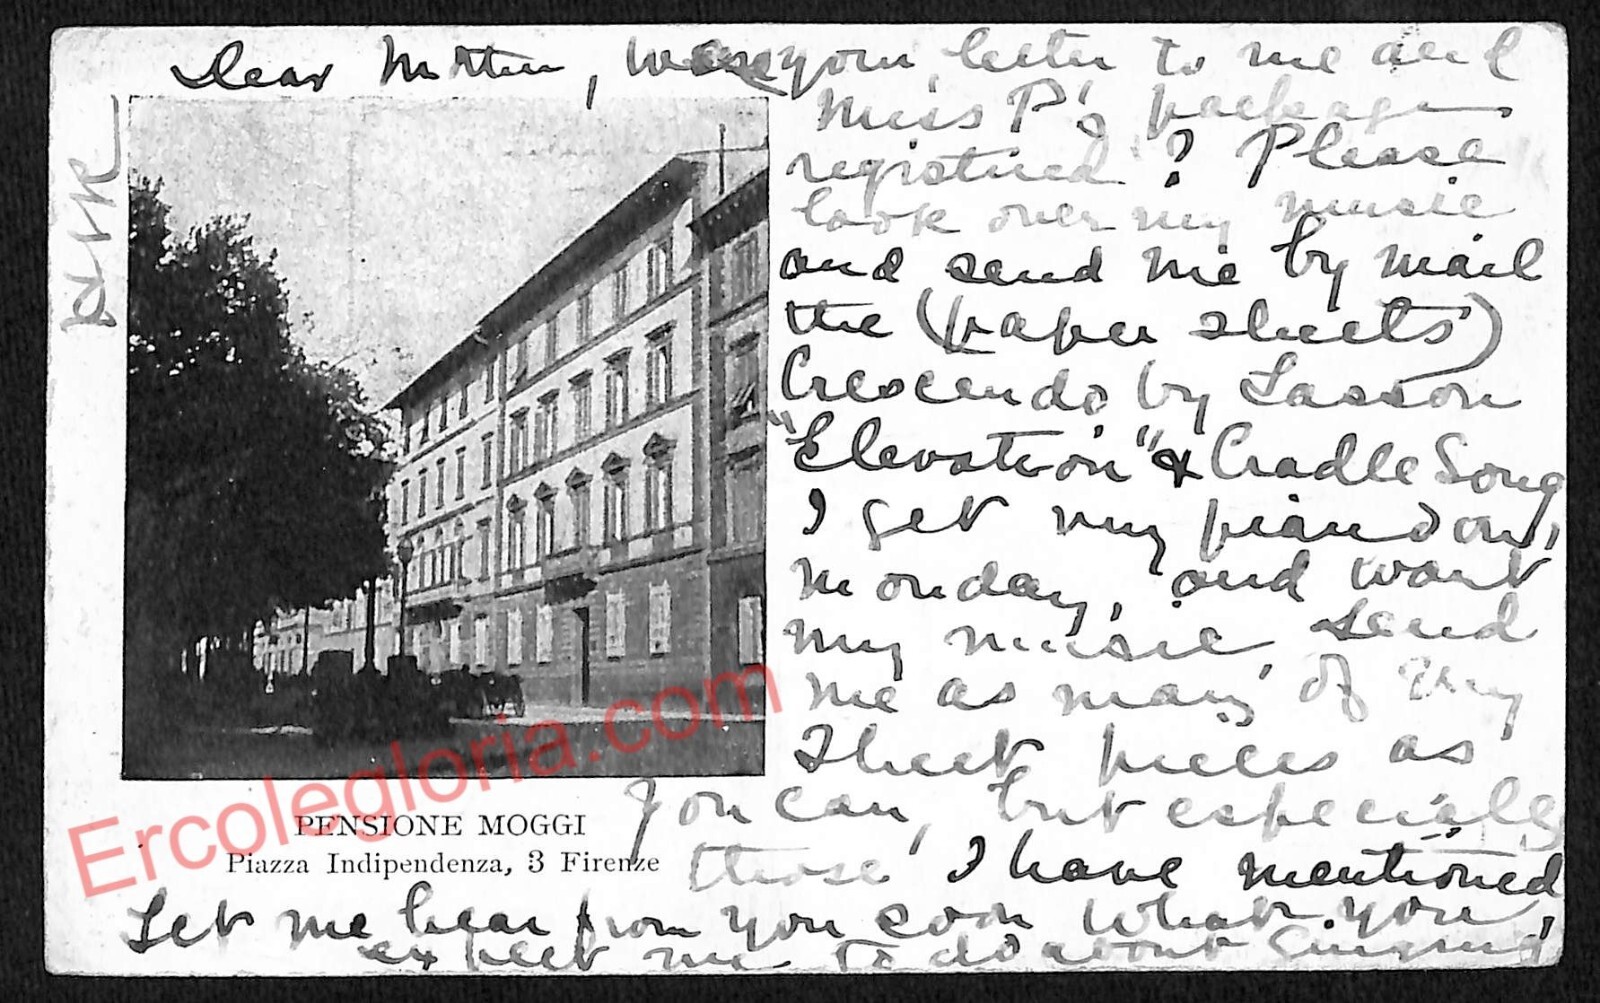 Dear Mother, Were your letter to me and
Miss P's package
registered? Please
look over my music
and send me by mail
the (paper sheets)
Crescendo by Lasson
"Elevation" & Cradle Song
I get my piano on,
Monday, and want
my music, send
me as many of my
sheet pieces as
you can, but especially
those I have mentioned
Let me hear from you soon what you
expect me to do about singing,
PENSIONE MOGGI
Piazza Indipendenza, 3 Firenze
Ercolegloria.com